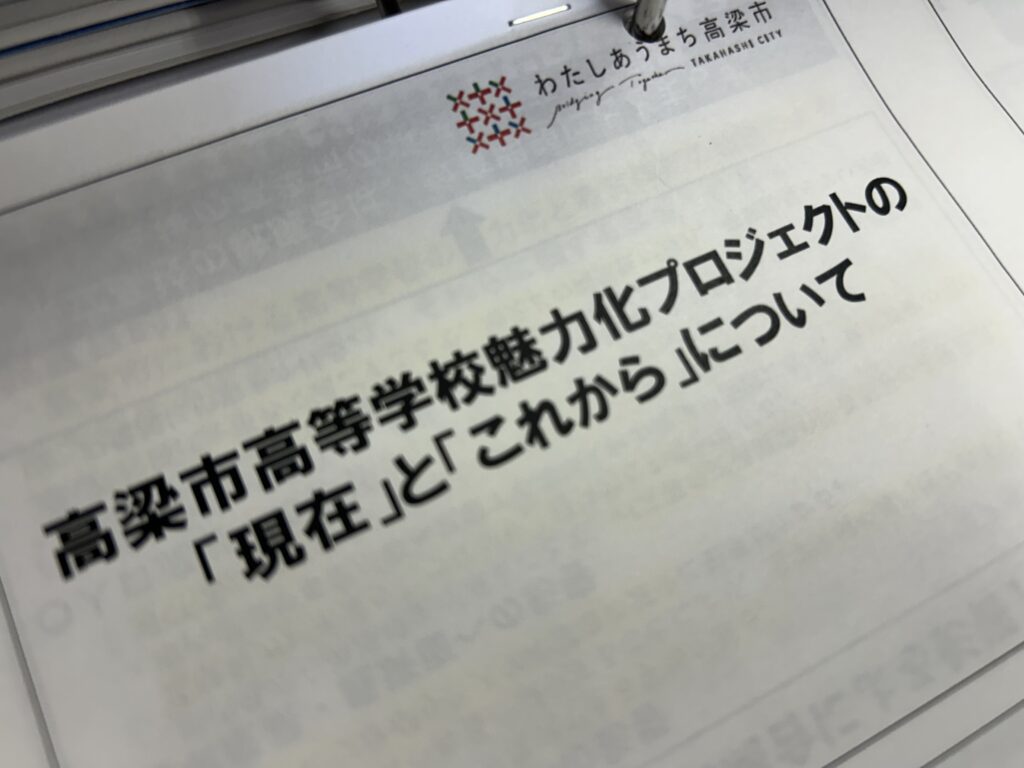 わたしあうまち高梁市
Bridging Together TAKAHASHI CITY
高梁市高等学校魅力化プロジェクトの
「現在」と「これから」について